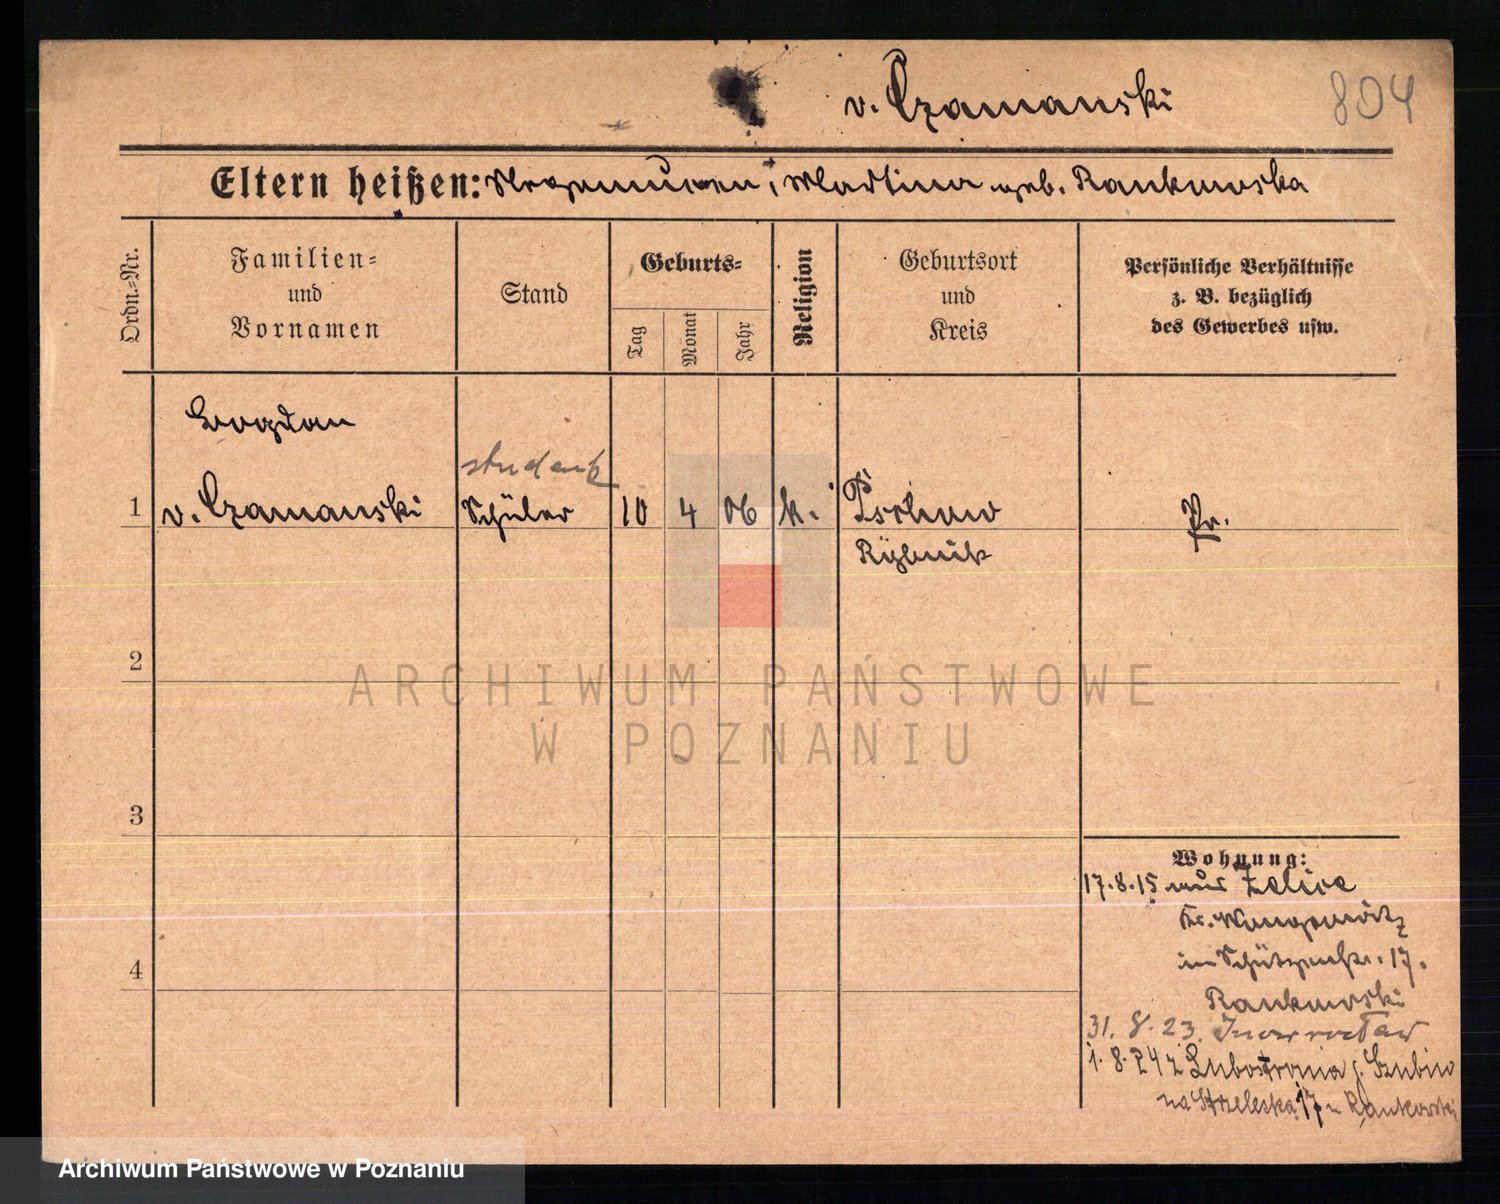 v. Czamanski
804
Eltern heißen: Martina geb. Rankowska
Ordn.-Nr.
Familien-
und
Vornamen
Stand
Geburts-
Tag
Monat
Jahr
Religion
Geburtsort
und
Kreis
Persönliche Verhältnisse
z. B. bezüglich
des Gewerbes usw.
Bogdan
student
1 v. Czamanski Schüler 10 4 06 k. Pschow Pr.
Rybnik
2
ARCHIWUM PAŃSTWOWE
W POZNANIU
3
4
Wohnung:
17.8.15 aus Zelice
Kr. Wongrowitz
in Schützenstr. 17.
Rankowski
31. 8. 23. Inowrocław
1. 8. 24 z Lubostronia p. Szubin
na Strzelecka 17 u Rankowski
Archiwum Państwowe w Poznaniu